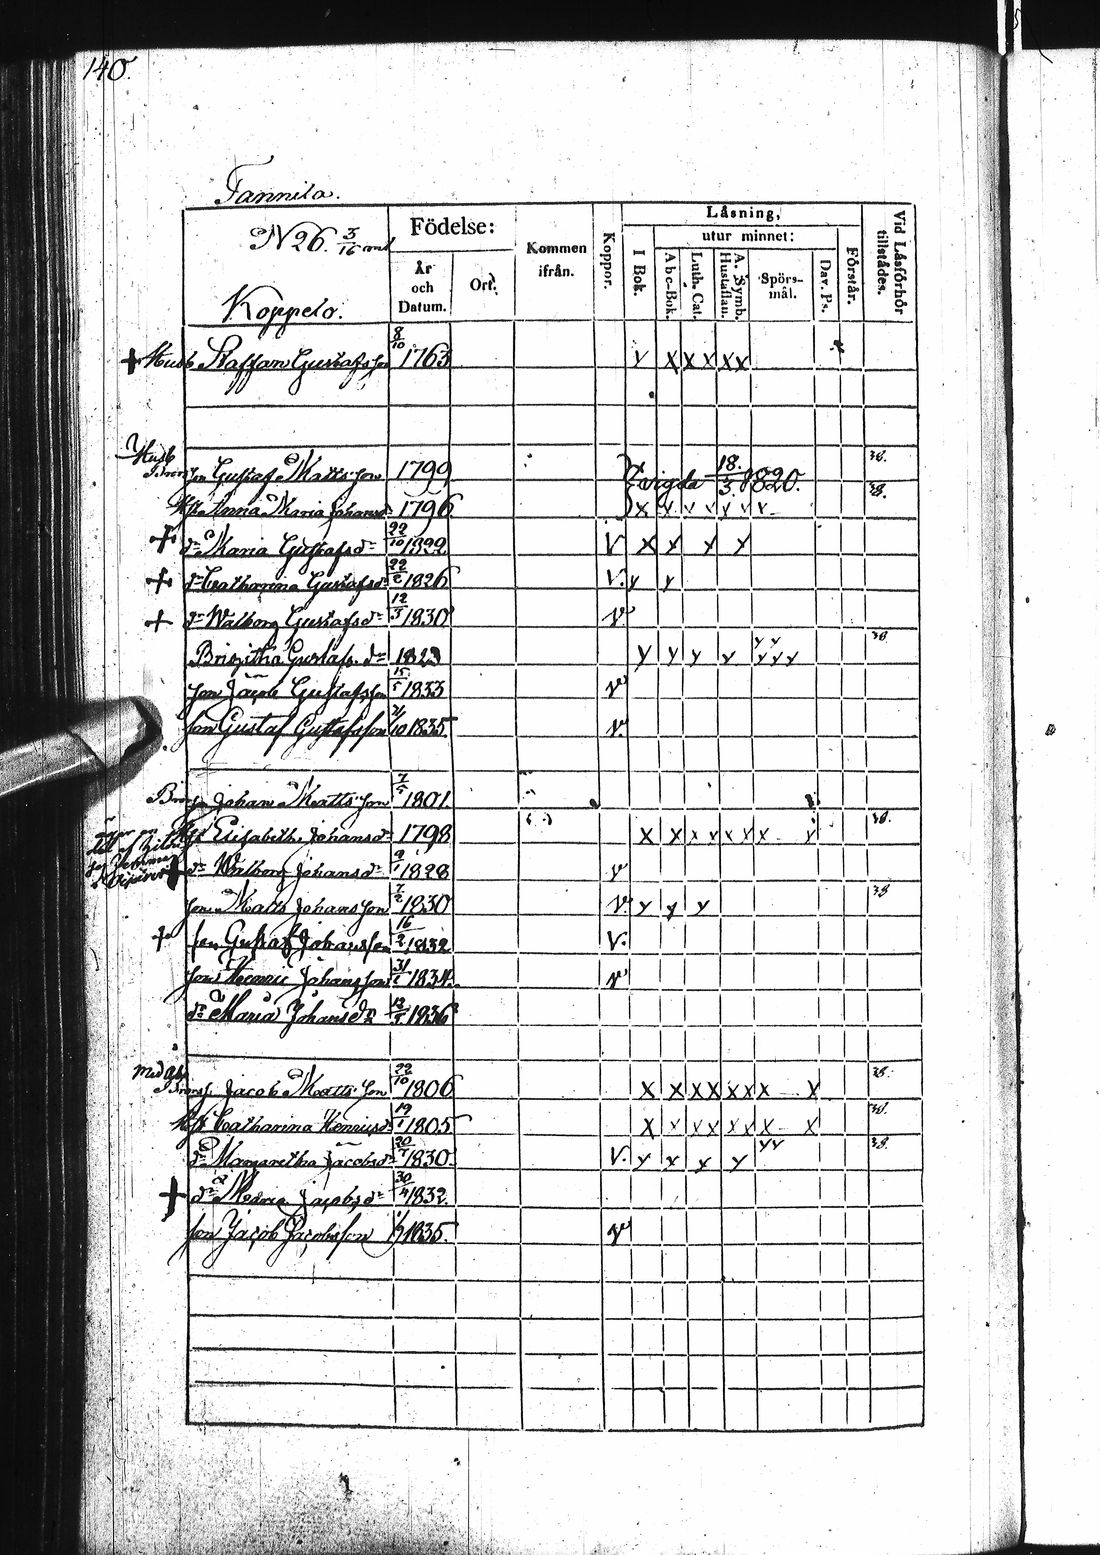 140.
Tannila.
N 26. 3/16 mtl
Koppelo.
Födelse:
År och Datum.
Ort.
Kommen ifrån.
Koppor.
Läsning,
I Bok.
utur minnet:
Abc-Bok.
Luth. Cat.
A. Symb. Hustaflan.
Spörs-mål.
Dav. Ps.
Förstår.
Vid Läsförhör tillstådes.
+ Husb Staffan Gustafsson 8/10 1763 y x x x x x
Husb
Brorson Gustaf Mattsson 1799 vigda 18/3 1820. 38.
Hst. Anna Maria Johansd. 1796 x y y y y y y 38.
+ dr Maria Gustafsdr 22/10 1822 V x y y y
+ dr Catharina Gustafsd. 22/2 1826 V. y y
+ dr Walborg Gustafsdr 12/3 1830 v
Brigitha Gustafs.dr 1823 y y y y y y y y y 38
son Jacob Gustafsson 15/5 1833 v
son Gustaf Gustafsson 21/10 1835 v.
Brorson Johan Mattsson 7/5 1801.
Hst Elisabeth Johansd. 1798 x x x x x x x y 38.
+ dr Walborg Johansdr 1828 v
son Matts Johansson 7/2 1830 V. y y y 38
+ son Gustaf Johansson 16/2 1832 V.
son Henric Johansson 31/1 1834. v
dr Maria Johansdr 1836
Brors. Jacob Mattsson 22/10 1806 x x x x x x x x 38.
Hst Catharina Henricsd. 19/1 1805 x x x x x x x x 38.
dr Margaretha Jacobsdr 1830. V. y y y y y y 38.
+ dr Maria Jacobsdr 30/4 1832.
son Jacob Jacobsson 1835. v